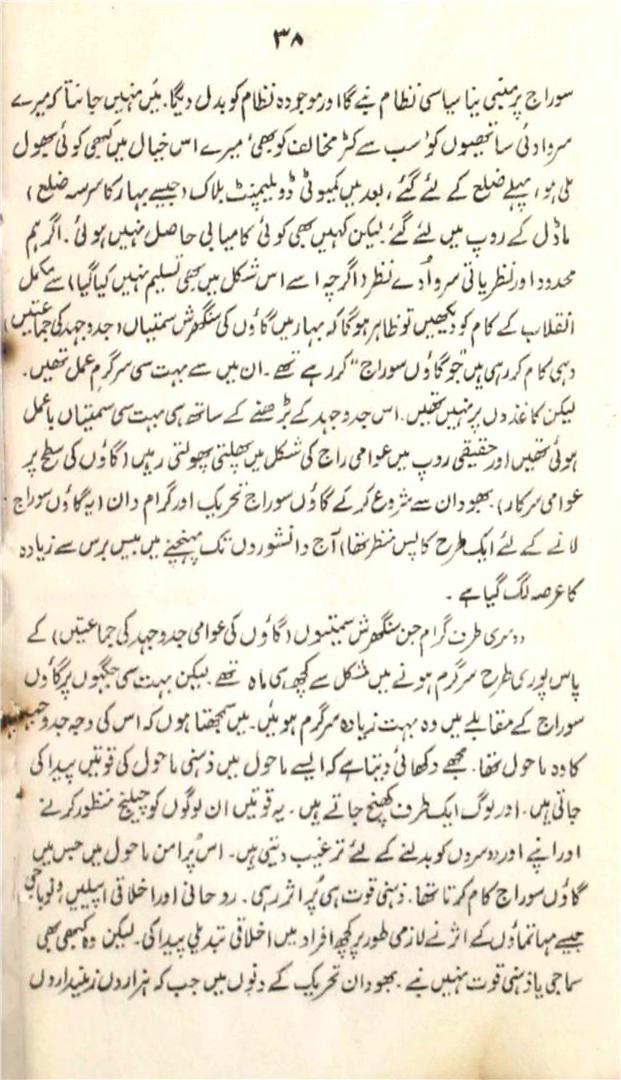 ۳۸
سوراج پر مبنی نیا سیاسی نظام بنے گا اور موجودہ نظام کو بدل دیگا. میں نہیں جانتا کہ میرے
سروادئی ساتھیوں کو سب سے کٹر مخالف کو بھی میرے اس خیال میں کبھی کوئی بھول
ملی ہو، پہلے ضلع کے لئے گئے، بعد میں کمیوٹی ڈویلپمنٹ بلاک (جیسے بہار کا سرسہ ضلع)
ماڈل کے روپ میں لئے گئے لیکن کہیں بھی کوئی کامیابی حاصل نہیں ہوئی. اگر ہم
محدود اور نظریاتی سرواُدے نظر (اگرچہ اسے اس شکل میں بھی تسلیم نہیں کیا گیا) سے مکمل
انقلاب کے کام کو دیکھیں تو ظاہر ہوگا کہ بہار میں گاؤں کی سنگھرش سمتیاں (جدوجہد کی جماعتیں)
وہی کام کر رہی ہیں "جو گاؤں سوراج" کر رہے تھے۔ ان میں سے بہت سی سرگرم عمل تھیں.
لیکن کاغذوں پر نہیں تھیں. اس جدوجہد کے بڑھنے کے ساتھ ہی بہت سی سمتیاں باعمل
ہوئی تھیں اور حقیقی روپ میں عوامی راج کی شکل میں پھلتی پھولتی رہیں (گاؤں کی سطح پر
عوامی سرکار). بھودان سے شروع کر کے گاؤں سوراج تحریک اور گرام دان (یہ گاؤں سوراج
لانے کے لئے ایک طرح کا پس منظر تھا) آج دانشوروں تک پہنچنے میں بیس برس سے زیادہ
کا عرصہ لگ گیا ہے ۔
دوسری طرف گرام جن سنگھرش سمیتیوں (گاؤں کی عوامی جدوجہد کی جماعتیں) کے
پاس پوری طرح سرگرم ہونے میں مشکل سے کچھ ہی ماہ تھے. لیکن بہت سی جگہوں پر گاؤں
سوراج کے مقابلے میں وہ بہت زیادہ سرگرم ہوئیں. میں سمجھتا ہوں کہ اس کی وجہ جدوجہد
کا وہ ماحول تھا. مجھے دکھائی دیتا ہے کہ ایسے ماحول میں ذہنی ماحول کی قوتیں پیدا کی
جاتی ہیں. اور لوگ ایک طرف کھنچ جاتے ہیں. یہ قوتیں ان لوگوں کو چیلنج منظور کرنے
اور اپنے اور دوسروں کو بدلنے کے لئے ترغیب دیتی ہیں. اس پُر امن ماحول میں جس میں
گاؤں سوراج کام کرتا تھا. ذہنی قوت ہی پُر اثر رہی. روحانی اور اخلاقی اپیلیں ونوباجی
جیسے مہاتماؤں کے اثر نے لازمی طور پر کچھ افراد میں اخلاقی تبدیلی پیدا کی. لیکن وہ کبھی بھی
سماجی یا ذہنی قوت نہیں بنے. بھودان تحریک کے دنوں میں جب کہ ہزاروں زمینداروں